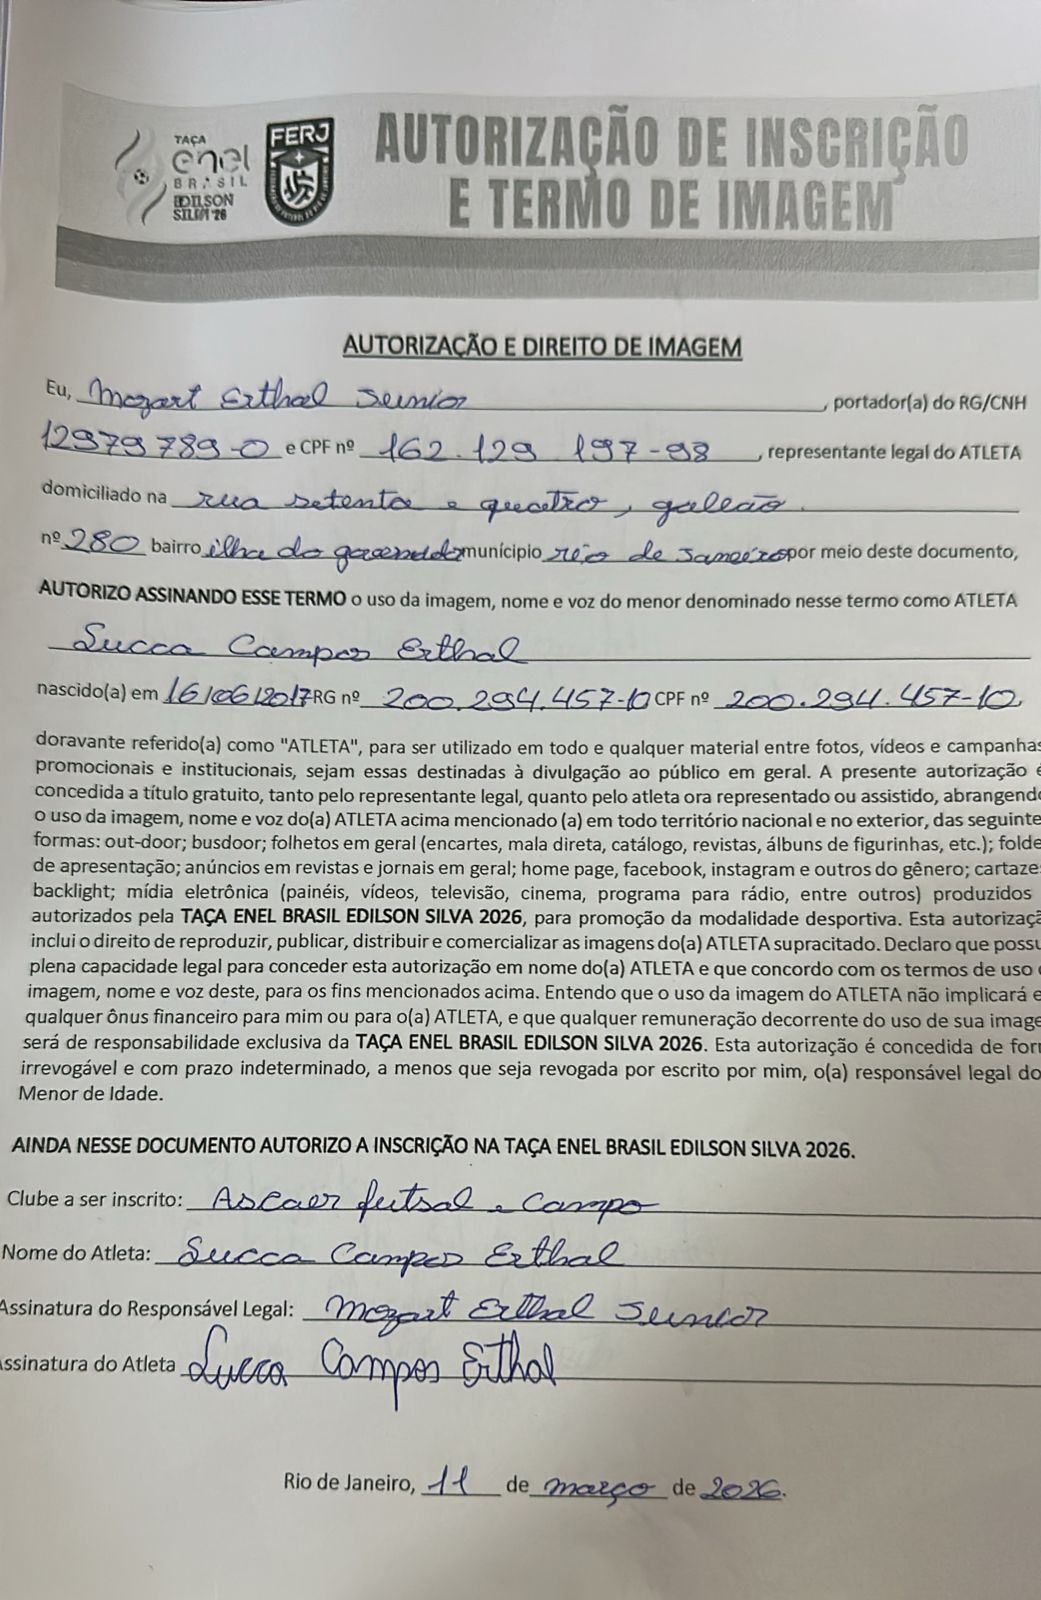 TAÇA
enel
BRASIL
EDILSON
SILVA '26
FERJ
AUTORIZAÇÃO DE INSCRIÇÃO
E TERMO DE IMAGEM
AUTORIZAÇÃO E DIREITO DE IMAGEM
Eu, Mozart Erthal Junior, portador(a) do RG/CNH
12979789-0 e CPF nº 162.129.197-98, representante legal do ATLETA
domiciliado na rua setenta e quatro, galeão.
nº 280 bairro ilha do governador município rio de janeiro por meio deste documento,
AUTORIZO ASSINANDO ESSE TERMO o uso da imagem, nome e voz do menor denominado nesse termo como ATLETA
Lucca Campos Erthal
nascido(a) em 16/06/2017 RG nº 200.294.457-10 CPF nº 200.294.457-10,
doravante referido(a) como "ATLETA", para ser utilizado em todo e qualquer material entre fotos, vídeos e campanhas
promocionais e institucionais, sejam essas destinadas à divulgação ao público em geral. A presente autorização é
concedida a título gratuito, tanto pelo representante legal, quanto pelo atleta ora representado ou assistido, abrangend
o uso da imagem, nome e voz do(a) ATLETA acima mencionado (a) em todo território nacional e no exterior, das seguinte
formas: out-door; busdoor; folhetos em geral (encartes, mala direta, catálogo, revistas, álbuns de figurinhas, etc.); folde
de apresentação; anúncios em revistas e jornais em geral; home page, facebook, instagram e outros do gênero; cartaze
backlight; mídia eletrônica (painéis, vídeos, televisão, cinema, programa para rádio, entre outros) produzidos
autorizados pela TAÇA ENEL BRASIL EDILSON SILVA 2026, para promoção da modalidade desportiva. Esta autorizaçã
inclui o direito de reproduzir, publicar, distribuir e comercializar as imagens do(a) ATLETA supracitado. Declaro que possu
plena capacidade legal para conceder esta autorização em nome do(a) ATLETA e que concordo com os termos de uso d
imagem, nome e voz deste, para os fins mencionados acima. Entendo que o uso da imagem do ATLETA não implicará e
qualquer ônus financeiro para mim ou para o(a) ATLETA, e que qualquer remuneração decorrente do uso de sua image
será de responsabilidade exclusiva da TAÇA ENEL BRASIL EDILSON SILVA 2026. Esta autorização é concedida de forr
irrevogável e com prazo indeterminado, a menos que seja revogada por escrito por mim, o(a) responsável legal do
Menor de Idade.
AINDA NESSE DOCUMENTO AUTORIZO A INSCRIÇÃO NA TAÇA ENEL BRASIL EDILSON SILVA 2026.
Clube a ser inscrito: Ascaer futsal e Campo
Nome do Atleta: Lucca Campos Erthal
Assinatura do Responsável Legal: Mozart Erthal Junior
Assinatura do Atleta Lucca Campos Erthal
Rio de Janeiro, 11 de março de 2026.